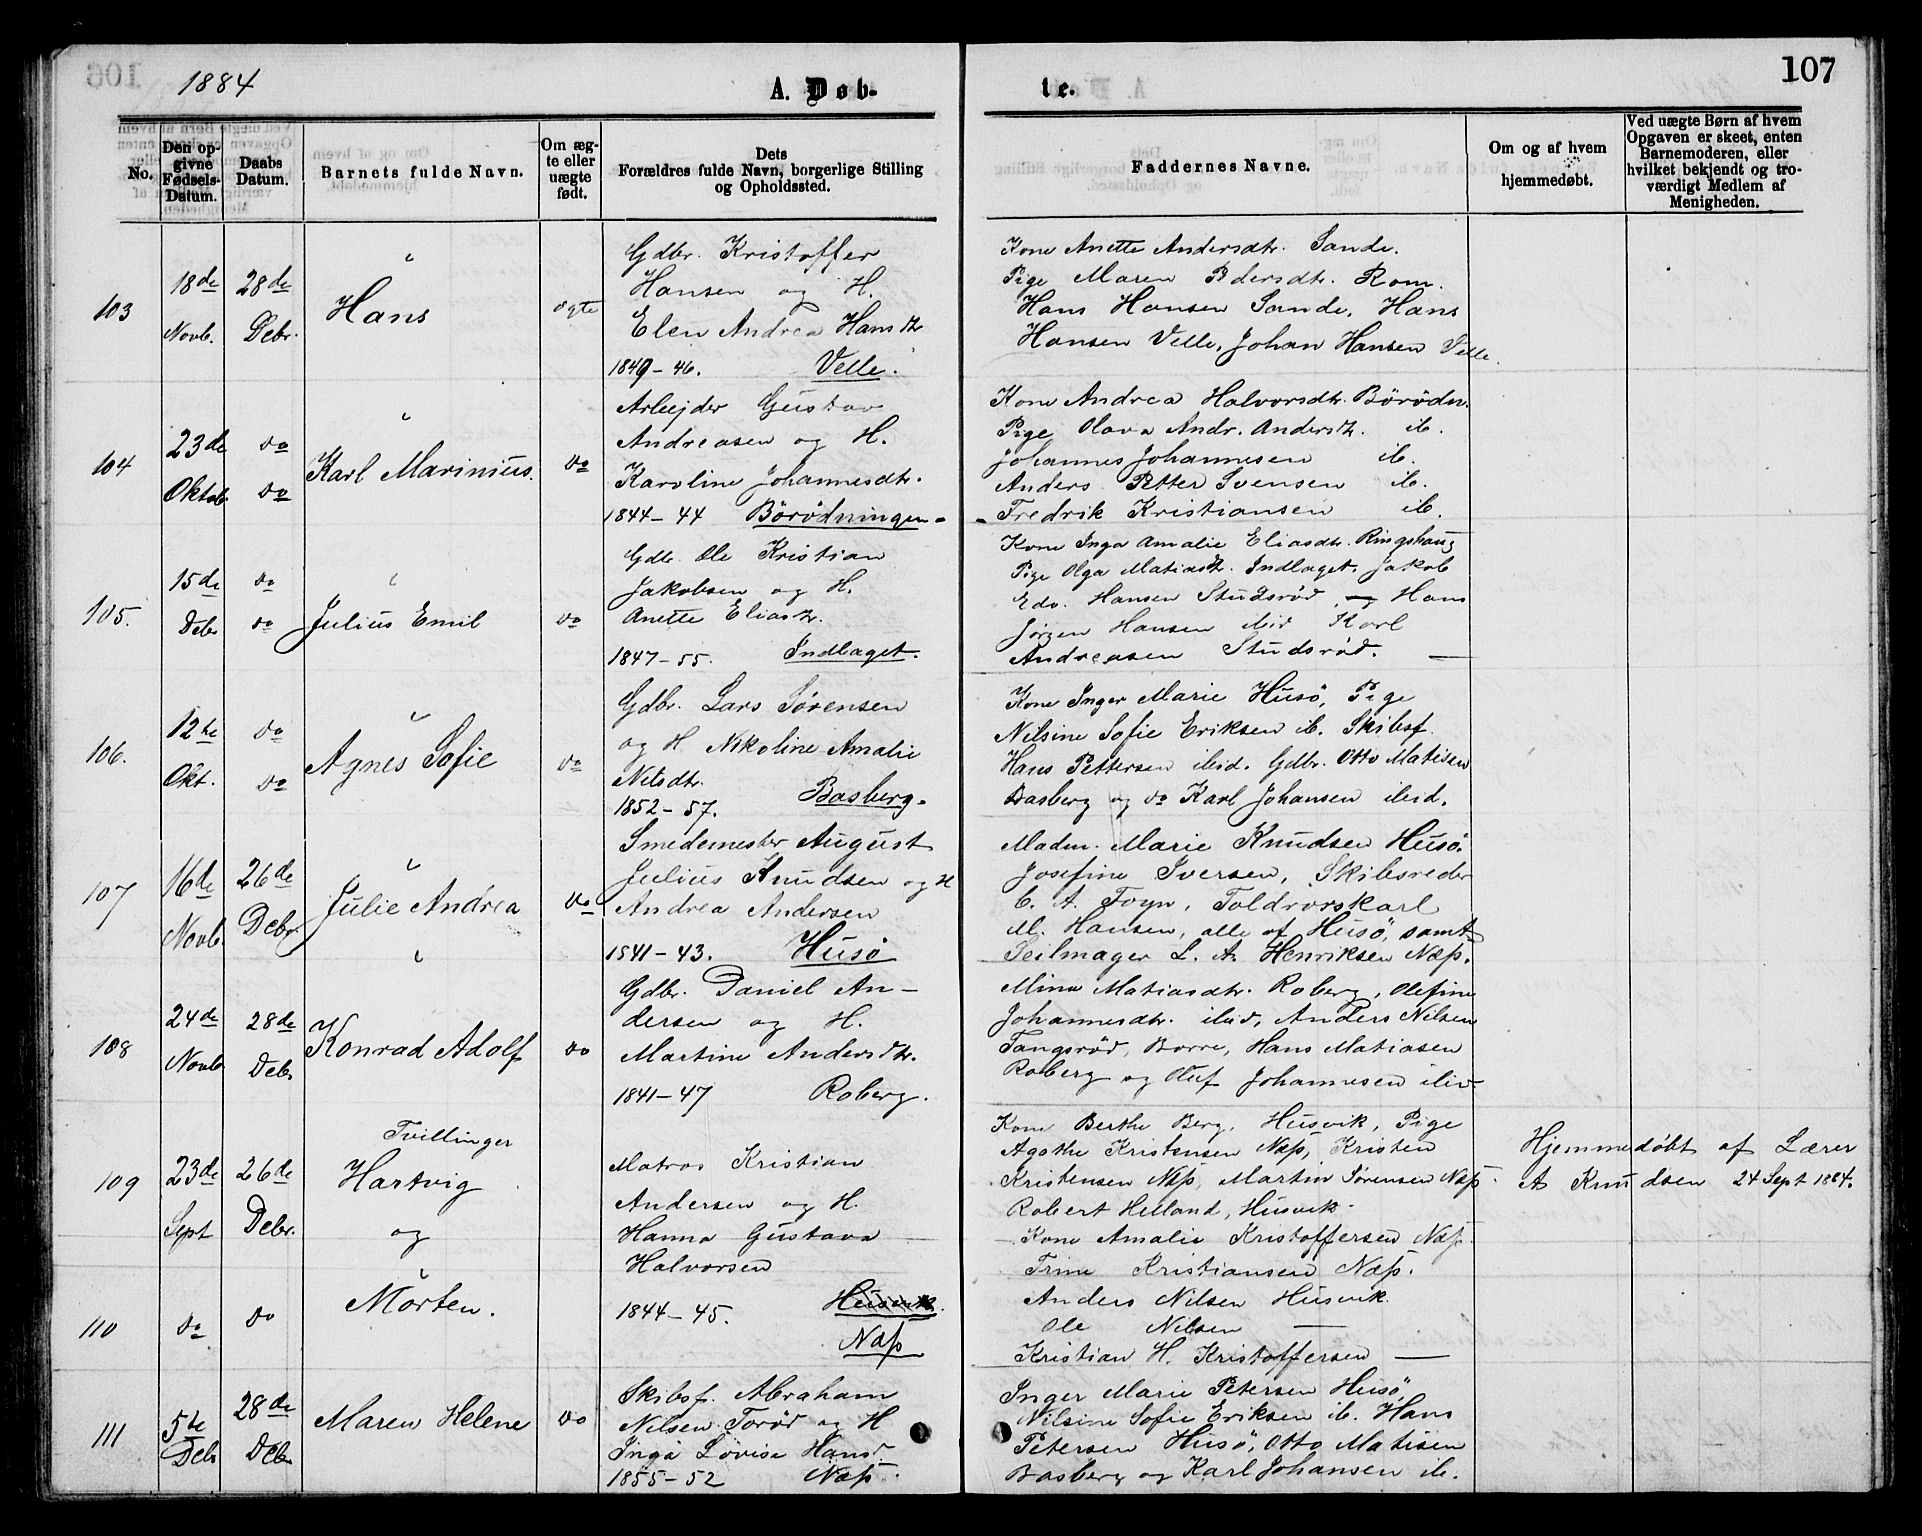 1884
A. Døb-
te.
107
No.
Den op-
givne
Fødsels-
Datum.
Daabs
Datum.
Barnets fulde Navn.
Om æg-
te eller
uægte
født.
Dets
Forældres fulde Navn, borgerlige Stilling
og Opholdssted.
Faddernes Navne.
Om og af hvem
hjemmedøbt.
Ved uægte Børn af hvem
Opgaven er skeet, enten
Barnemoderen, eller
hvilket bekjendt og tro-
værdigt Medlem af
Menigheden.
103
18de
Novb.
28de
Debr.
Hans
ægte
Gdbr. Kristoffer
Hansen og H.
Elen Andrea Hansdtr
1849-46. Velle.
Kone Anette Andersdtr. Sande.
Pige Maren Pedersdtr. Rom.
Hans Hansen Sande, Hans
Hansen Velle, Johan Hansen Velle.
104
23de
Oktob.
do
do
Karl Marinius.
do
Arbejder Gustav
Andreasen og H.
Karoline Johannesdtr.
1844-44 Börödningen
Kone Andrea Halvorsdtr. Börödn.
Pige Olava Andr. Andersdtr. ib.
Johannes Johannesen ib.
Anders Petter Svensen ib.
Fredrik Kristiansen ib.
105.
15de
Debr
do
do
Julius Emil
do
Gdbr. Ole Kristian
Jakobsen og H.
Anette Eliasdtr.
1847-55. Indlaget.
Kone Inga Amalie Eliasdtr. Ringshaug
Pige Olga Matiasdtr. Indlaget, Jakob
Edv. Hansen Studsrød, og Hans
Jørgen Hansen ibid Karl
Andreasen Studsrød.
106.
12te
Okt.
do
do
Agnes Sofie
do
Gdbr. Lars Sørensen
og H Nikoline Amalie
Nilsdtr.
1852-57. Basberg.
Kone Inger Marie Husö, Pige
Nilsine Sofie Eriksen ib. Skibsf.
Hans Pettersen ibid. Gdbr. Otto Matisen
Basberg og do Karl Johansen ibid.
107
16de
Novb.
26de
Debr.
Julie Andrea
do
Smedemester August
Julius Knudsen og H
Andrea Andersen
1841-43. Husö
Madm. Marie Knudsen Husö.
Josefine Iversen, Skibsreder
C. A. Foyn, Toldrorskarl
M. Hansen, alle af Husö, samt
Seilmager L. A. Henriksen Næs.
108
24de
Novb
28de
Debr
Konrad Adolf
do
Gdbr. Daniel An-
dersen og H.
Martine Andersdtr.
1841-47 Roberg.
Mina Matiasdtr. Roberg, Olefine
Johannesdtr. ibid, Anders Nilsen
Tangsrød, Borre, Hans Matiasen
Roberg og Oluf Johannesen ibid
109
23de
Sept
26de
Debr.
Tvillinger
Hartvig
og
Matros Kristian
Andersen og H.
Hanna Gustava
Halvorsen
1844-45. Husvik.
Næs
Kone Berthe Berg, Husvik, Pige
Agathe Kristensen Næs, Kristen
Kristensen Næs, Martin Sørensen Næs
Robert Helland, Husvik.
Hjemmedøbt af Lærer
A Knudsen 24 Sept 1884.
110
do
do
Morten.
Kone Amalie Kristoffersen Næs.
Trine Kristiansen Næs.
Anders Nilsen Husvik.
Ole Nilsen —
Kristian H. Kristoffersen —
111
5te
Debr
28de
Debr
Maren Helene
do
Skibsf. Abraham
Nilsen Torød og H
Inga Lovise Hansd.
1855-52 Næs.
Inger Marie Petersen Husö,
Nilsine Sofie Eriksen ib. Hans
Petersen Husö, Otto Matisen
Basberg og Karl Johansen ib.